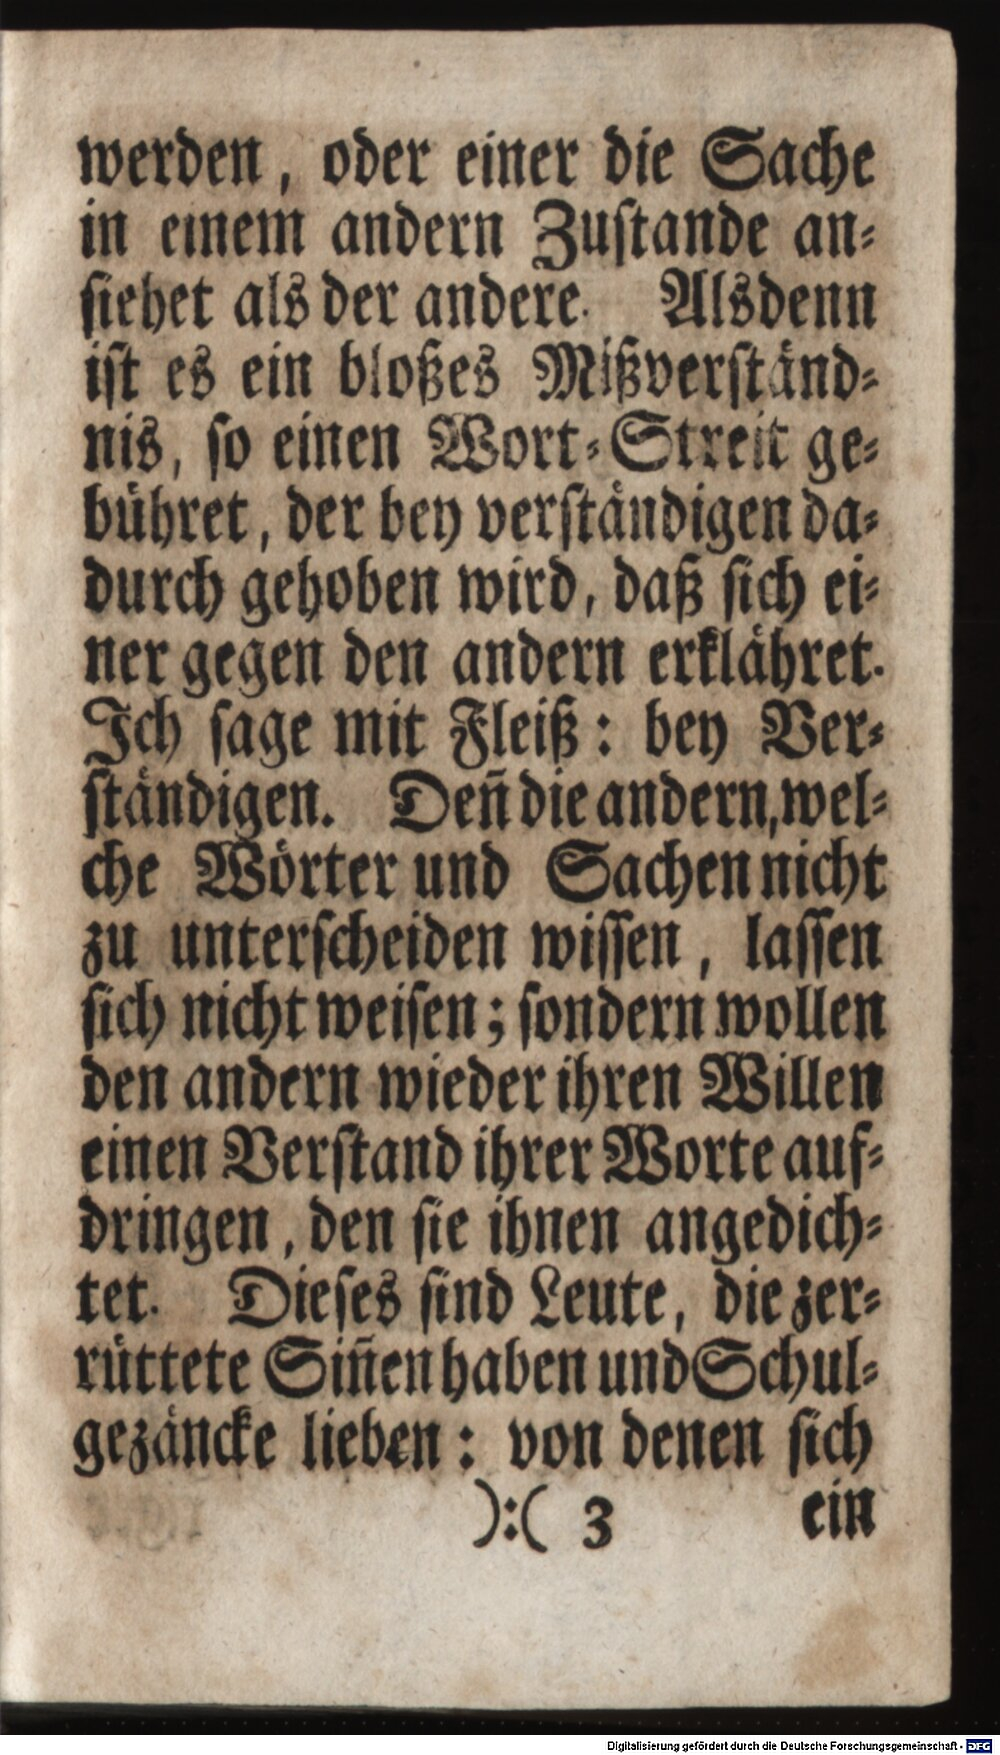 werden, oder einer die Sache
in einem andern Zustande an-
siehet als der andere. Alsdenn
ist es ein bloßes Mißverständ-
nis, so einen Wort-Streit ge-
bühret, der bey verständigen da-
durch gehoben wird, daß sich ei-
ner gegen den andern erklähret.
Ich sage mit Fleiß: bey Ver-
ständigen. Deñ die andern, wel-
che Wörter und Sachen nicht
zu unterscheiden wissen, lassen
sich nicht weisen; sondern wollen
den andern wieder ihren Willen
einen Verstand ihrer Worte auf-
dringen, den sie ihnen angedich-
tet. Dieses sind Leute, die zer-
rüttete Siñen haben und Schul-
gezäncke lieben: von denen sich
):( 3 ein
Digitalisierung gefördert durch die Deutsche Forschungsgemeinschaft - DFG